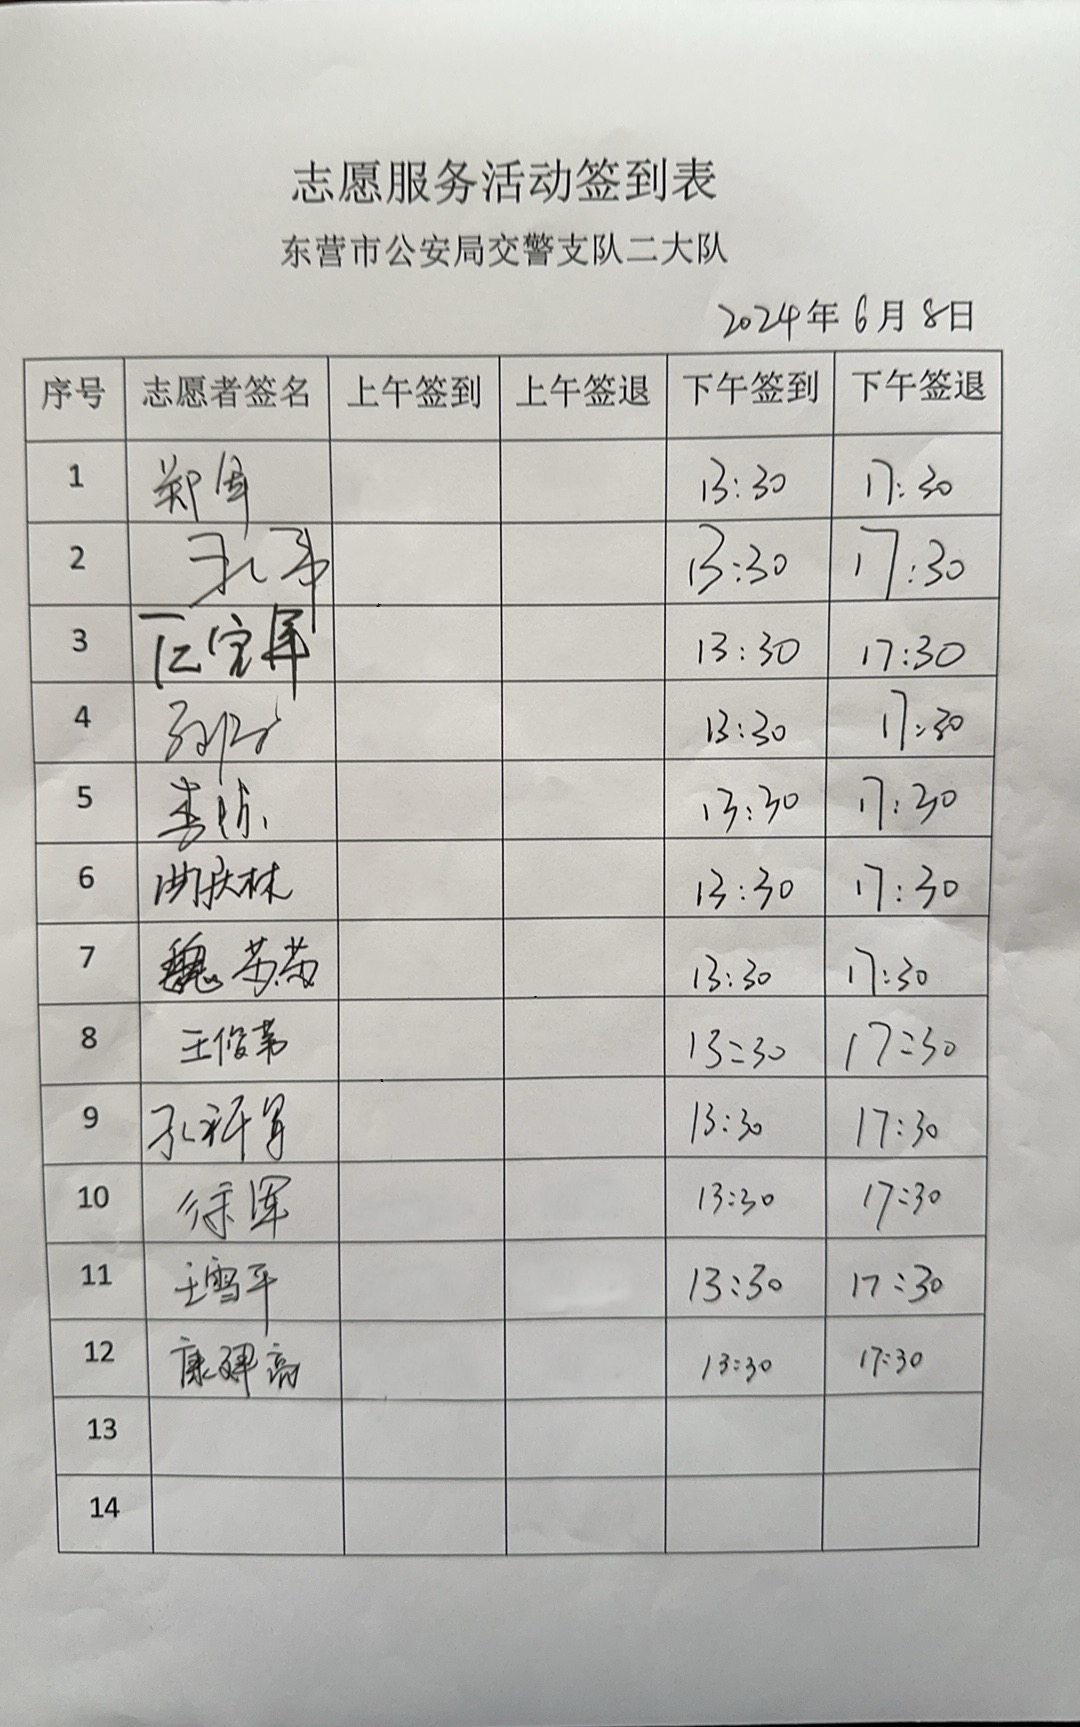 志愿服务活动签到表
东营市公安局交警支队二大队
2024年6月8日
序号 志愿者签名 上午签到 上午签退 下午签到 下午签退
1 郑 13:30 17:30
2 孔 13:30 17:30
3 13:30 17:30
4 13:30 17:30
5 李 13:30 17:30
6 曲庆林 13:30 17:30
7 魏 13:30 17:30
8 王俊 13:30 17:30
9 孔祥 13:30 17:30
10 徐 13:30 17:30
11 王雪平 13:30 17:30
12 康建 13:30 17:30
13
14